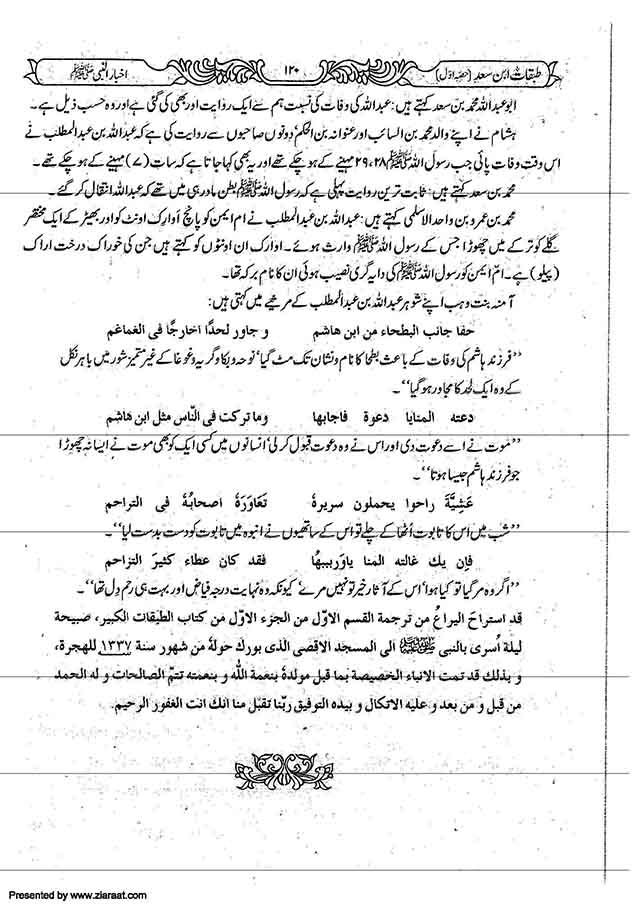 طبقات ابن سعد (حصہ اول)
۱۲۰
اخبار النبی ﷺ
ابوعبداللہ محمد بن سعد کہتے ہیں: عبداللہ کی وفات کی نسبت ہم سے ایک روایت اور بھی کی گئی ہے اور وہ حسب ذیل ہے۔
ہشام نے اپنے والد محمد بن السائب اور عنوانہ بن الحکم' دونوں صاحبوں سے روایت کی ہے کہ عبداللہ بن عبدالمطلب نے
اس وقت وفات پائی جب رسول اللہ ﷺ ۲۸، ۲۹ مہینے کے ہو چکے تھے اور یہ بھی کہا جاتا ہے کہ سات (۷) مہینے کے ہو چکے تھے۔
محمد بن سعد کہتے ہیں: ثابت ترین روایت پہلی ہے کہ رسول اللہ ﷺ بطن مادر ہی میں تھے کہ عبداللہ انتقال کر گئے۔
محمد بن عمرو بن واحد الاسلمی کہتے ہیں: عبداللہ بن عبدالمطلب نے ام ایمن کو پانچ اوارک اونٹ کو اور بھیڑ کے ایک مختصر
گلے کو ترکے میں چھوڑا جس کے رسول اللہ ﷺ وارث ہوئے۔ اوارک ان اونٹوں کو کہتے ہیں جن کی خوراک درخت اراک
(پیلو) ہے۔ ام ایمن کو رسول اللہ ﷺ کی دایہ گری نصیب ہوئی ان کا نام برکہ تھا۔
آمنہ بنت وہب اپنے شوہر عبداللہ بن عبدالمطلب کے مرثیے میں کہتی ہیں:
حفا جانب البطحاء من ابن هاشم و جاور لحدًا خارجًا فى الغماغم
''فرزند ہاشم کی وفات کے باعث بطحا کا نام و نشان تک مٹ گیا' نوحہ و بکا و گریہ و غوغا کے غیر متمیز شور میں باہر نکل
کے وہ ایک لحد کا مجاور ہو گیا''۔
دعته المنايا دعوة فاجابها وما تركت فى النّاس مثل ابن هاشم
''موت نے اسے دعوت دی اور اس نے وہ دعوت قبول کر لی' انسانوں میں کسی ایک کو بھی موت نے ایسا نہ چھوڑا
جو فرزند ہاشم جیسا ہوتا''۔
عَشِيَّةَ راحوا يحملون سريرهٗ تَعَاوَرَهٗ اصحابهٗ فى التراحم
''شب میں اس کا تابوت اٹھا کے چلے تو اس کے ساتھیوں نے انبوہ میں تابوت کو دست بدست لیا''۔
فان يك غالته المنا ياوريبهٗا فقد كان عطاء كثيرَ التراحم
''اگر وہ مر گیا تو کیا ہوا' اس کے آثار خیر تو نہیں مرے' کیونکہ وہ نہایت درجہ فیاض اور بہت ہی رحم دل تھا''۔
قد استراحَ اليراعُ من ترجمة القسم الاوّل من الجزء الاوّل من كتاب الطبقات الكبير، صبيحة
ليلة اُسرى بالنبى ﷺ الى المسجد الاقصى الذى بورك حولهٗ من شهور سنة ۱۳۳۷ للهجرة،
و بذلك قد تمت الانباء الخصيصة بما قبل مولدهٗ بنعمة اللّٰه و بنعمته تتمّ الصالحات و له الحمد
من قبل و من بعد و عليه الاتكال و بيده التوفيق ربّنا تقبل منا انك انت الغفور الرحيم.
Presented by www.ziaraat.com